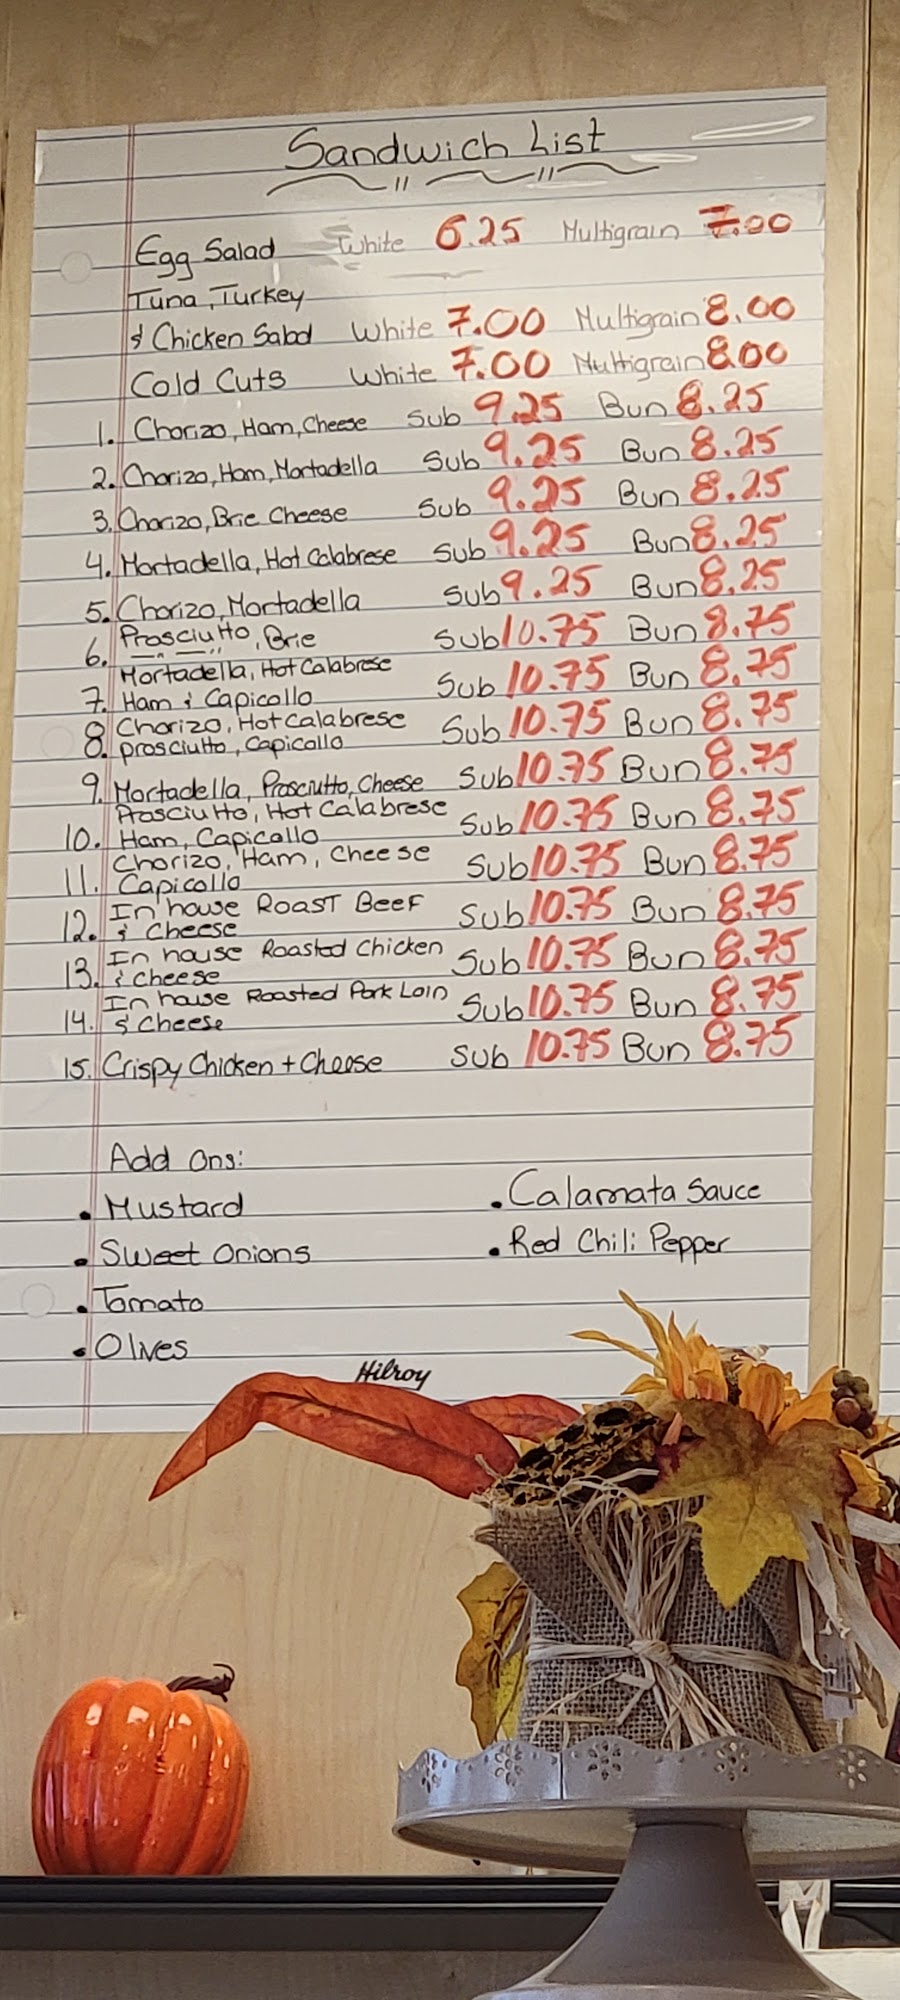 Sandwich List
Egg Salad White 6.25 Multigrain 7.00
Tuna, Turkey
& Chicken Salad White 7.00 Multigrain 8.00
Cold Cuts White 7.00 Multigrain 8.00
1. Chorizo, Ham, Cheese Sub 9.25 Bun 8.25
2. Chorizo, Ham, Mortadella Sub 9.25 Bun 8.25
3. Chorizo, Brie Cheese Sub 9.25 Bun 8.25
4. Mortadella, Hot Calabrese Sub 9.25 Bun 8.25
5. Chorizo, Mortadella Sub 9.25 Bun 8.25
6. Prosciutto, Brie Sub 10.75 Bun 8.75
Mortadella, Hot Calabrese
7. Ham & Capicollo Sub 10.75 Bun 8.75
Chorizo, Hot Calabrese
8. prosciutto, Capicollo Sub 10.75 Bun 8.75
9. Mortadella, Prosciutto, Cheese Sub 10.75 Bun 8.75
Prosciutto, Hot Calabrese
10. Ham, Capicollo Sub 10.75 Bun 8.75
Chorizo, Ham, Cheese
11. Capicollo Sub 10.75 Bun 8.75
In house Roast Beef
12. & Cheese Sub 10.75 Bun 8.75
In house Roasted Chicken
13. & Cheese Sub 10.75 Bun 8.75
In house Roasted Pork Loin
14. & Cheese Sub 10.75 Bun 8.75
15. Crispy Chicken + Cheese Sub 10.75 Bun 8.75
Add Ons:
• Mustard
• Sweet Onions
• Tomato
• Olives
• Calamata Sauce
• Red Chili Pepper
Hilroy